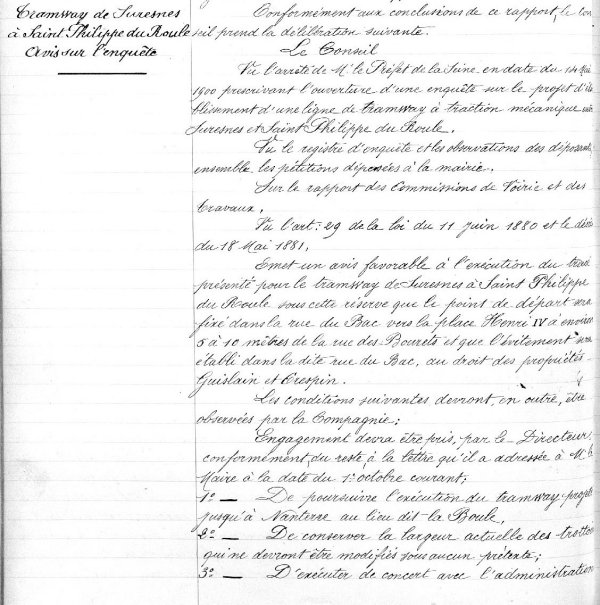 Tramway de Suresnes
à Saint Philippe du Roule
Avis sur l'enquête
Conformément aux conclusions de ce rapport, le Con
seil prend la délibération suivante.
Le Conseil
Vu l'arrêté de M. le Préfet de la Seine en date du 14 Mai
1900 prescrivant l'ouverture d'une enquête sur le projet d'éta
blissement d'une ligne de tramway à traction mécanique
Suresnes et Saint Philippe du Roule.
Vu le registre d'enquête et les observations des déposants,
ensemble les pétitions déposées à la mairie,
Sur le rapport des Commissions de Voirie et des
travaux,
Vu l'art: 29 de la loi du 11 juin 1880 et le décre
du 18 Mai 1881,
Emet un avis favorable à l'exécution du tracé
présenté pour le tramway de Suresnes à Saint Philippe
du Roule sous cette réserve que le point de départ sera
fixé dans la rue du Bac vers la place Henri IV à environ
5 à 10 mètres de la rue des Bourets et que l'évitement sera
établi dans la dite rue du Bac, au droit des propriétés
Guislain et Crespin.
Les conditions suivantes devront, en outre, être
observées par la Compagnie;
Engagement devra être pris, par le Directeur,
conformément, du reste, à la lettre qu'il a adressée à M. le
Maire à la date du 1er octobre courant;
1o — De poursuivre l'exécution du tramway projeté
jusqu'à Nanterre au lieu dit la Boule,
2o — De conserver la largeur actuelle des trottoi
qui ne devront être modifiés sous aucun prétexte;
3o — D'exécuter de concert avec l'administration